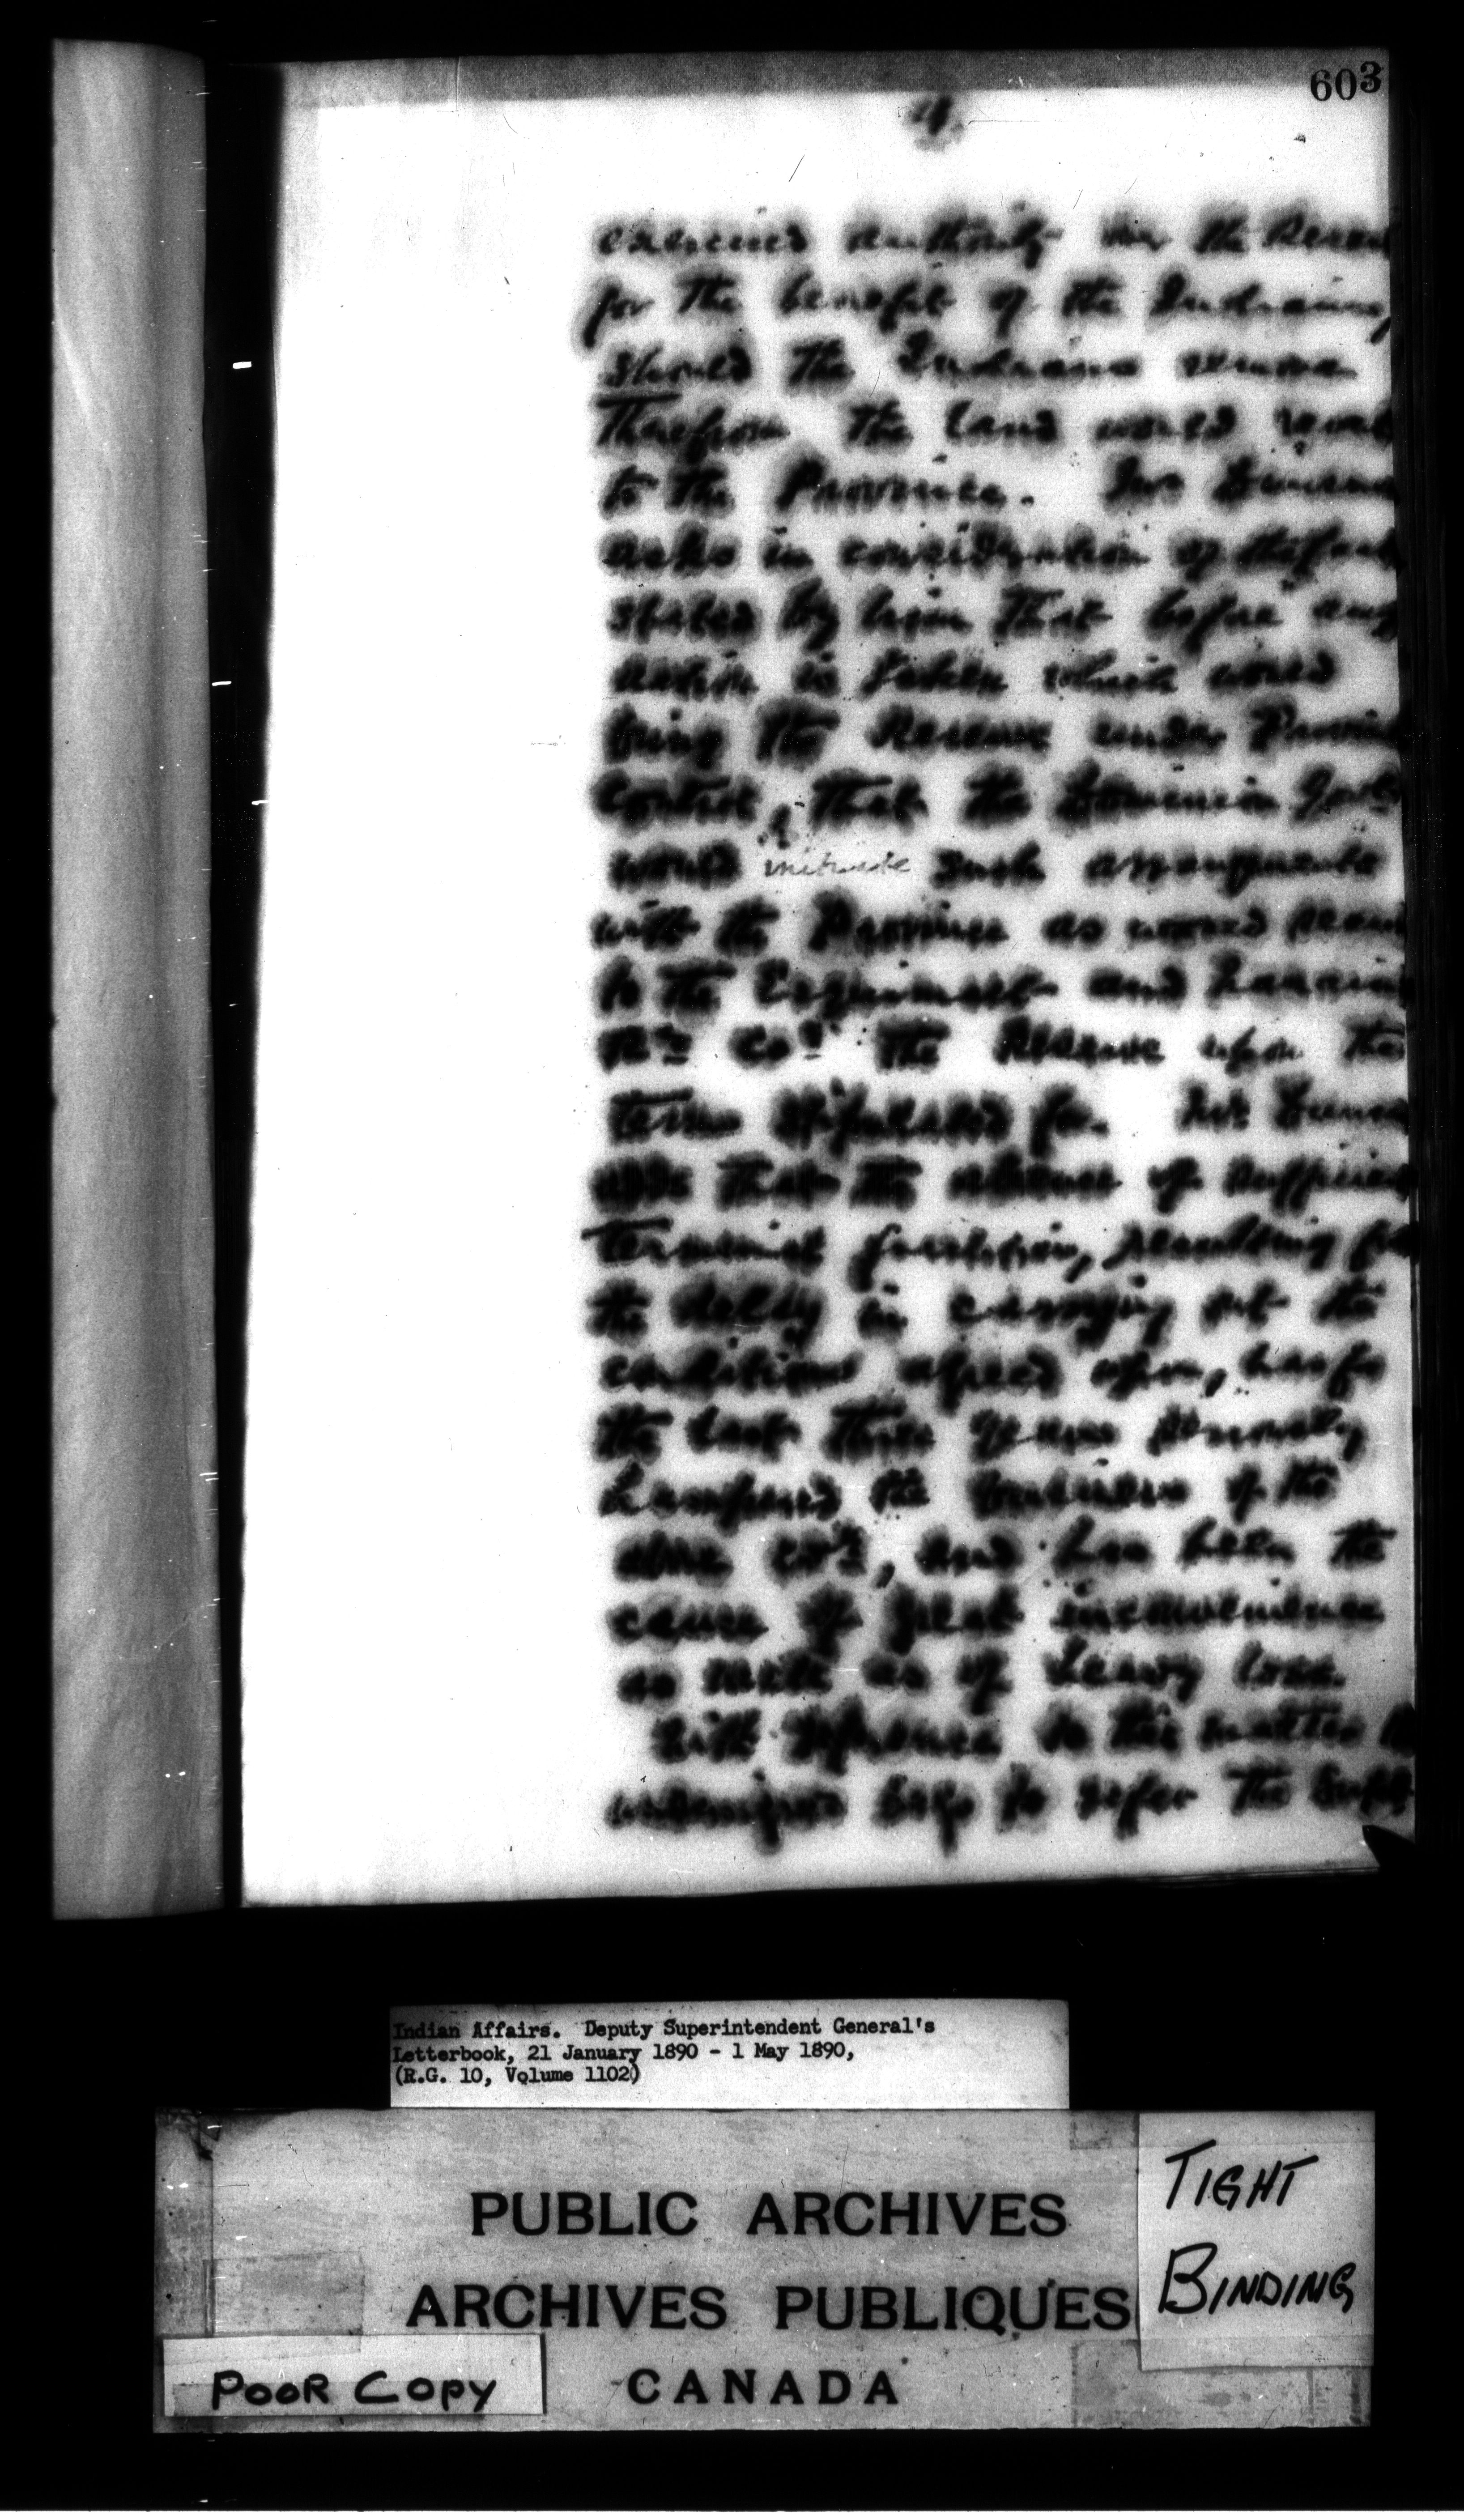 603
4.
exercised authority over the Reser
for the benefit of the Indians,
should the Indians remove
therefrom the land would revert
to the Province. Mr Dunsm
asks in consideration of the fact
stated by him that before any
action is taken which would
bring the Reserve under Provin
Control, that the Dominion Govt
would initiate such arrangements
with the Province as would secure
to the Esquimalt and Nanaim
Ry Coy the Reserve upon the
terms stipulated for. Mr Dunsm
adds that the absence of sufficien
terminal facilities, resulting fro
the delay in carrying out the
conditions agreed upon, has for
the last three years seriously
hampered the business of the
above Coy, and has been the
cause of great inconvenience
as well as of heavy loss.
With reference to this matter
undersigned begs to refer the Supt
Indian Affairs. Deputy Superintendent General's
Letterbook, 21 January 1890 - 1 May 1890,
(R.G. 10, Volume 1102)
PUBLIC ARCHIVES
ARCHIVES PUBLIQUES
CANADA
TIGHT
BINDING
POOR COPY